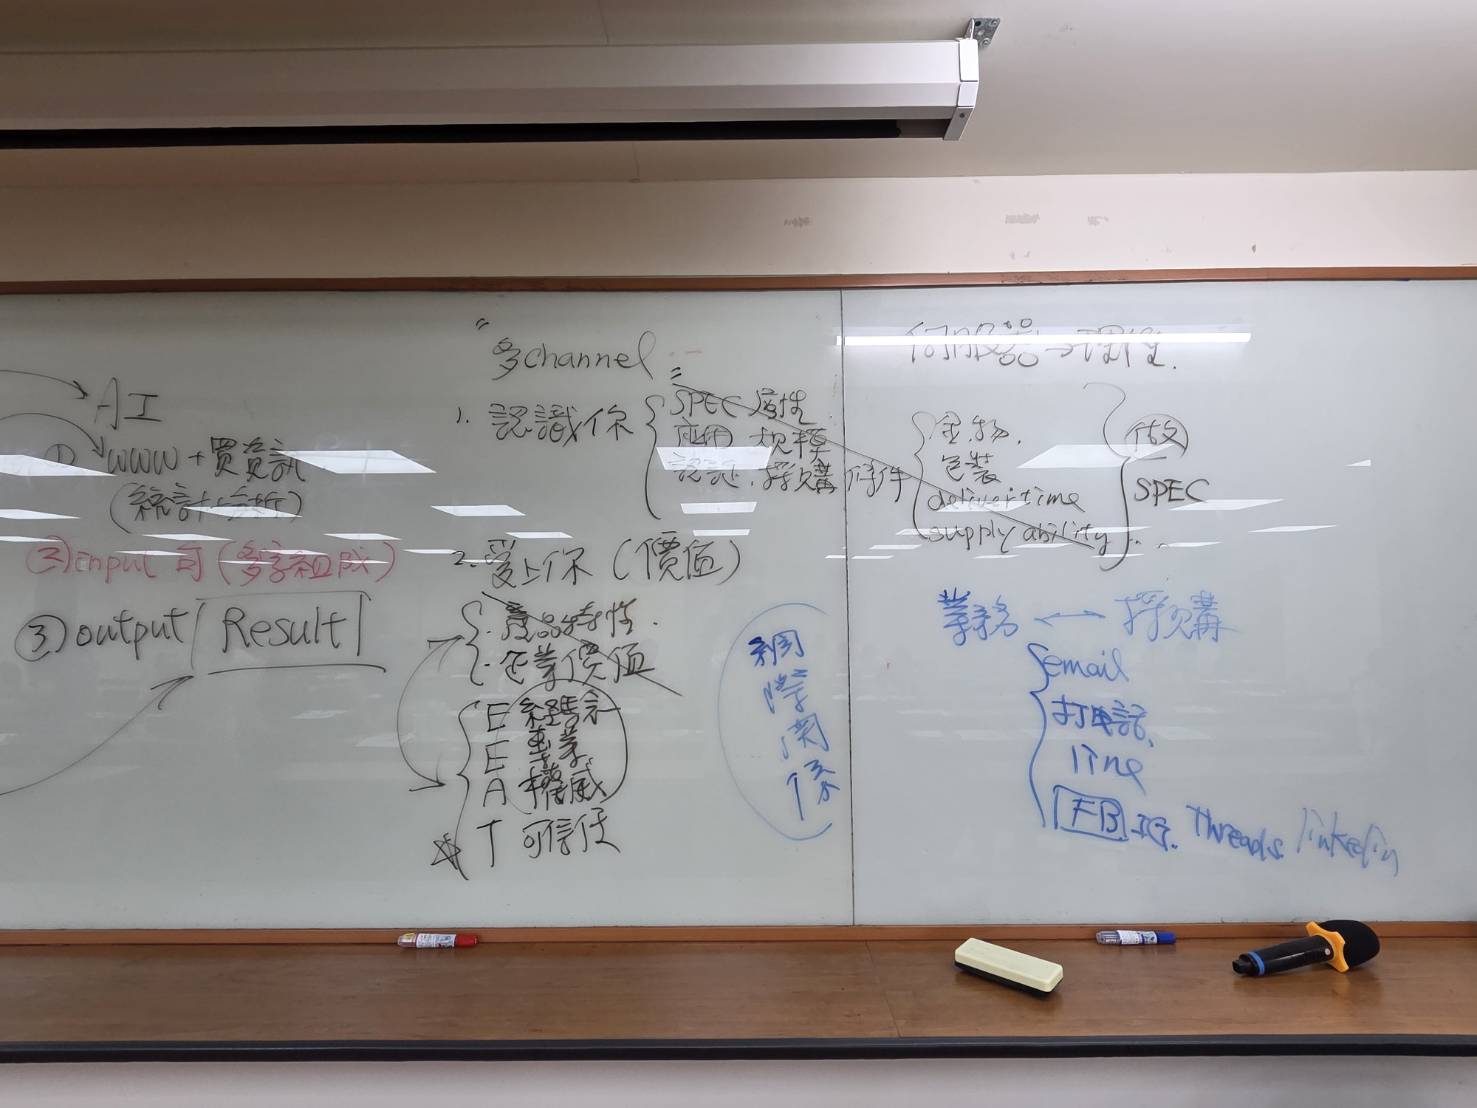 AI
① www + 買資訊
(統計+分析)
② input 可 (多字組成)
③ output Result
"多channel"
1. 認識你
SPEC 屬性
應用 規模
認証、採購條件
2. 愛上你 (價值)
產品特性.
企業價值
E 經驗
E 專業
A 權威
T 可信任
網際關係
伺服器→理性.
金物.
包裝
deliver time
supply ability
做
SPEC
業務 ←→ 採購
email
打電話.
line
FB. IG. Threads linkedin